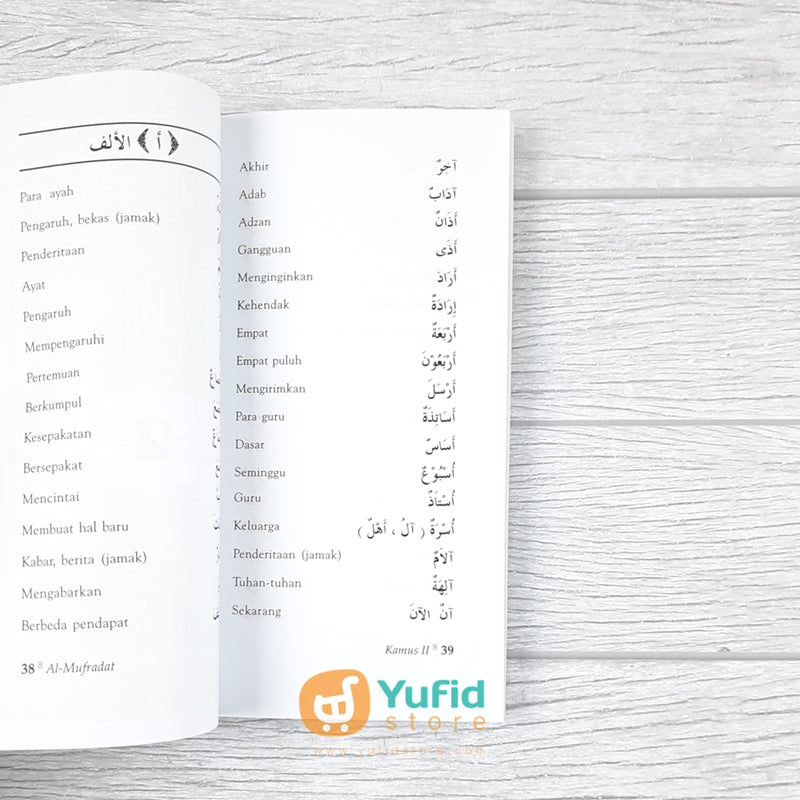 ﴿ أ ﴾ الألف
Para ayah
Pengaruh, bekas (jamak)
Penderitaan
Ayat
Pengaruh
Mempengaruhi
Pertemuan
Berkumpul
Kesepakatan
Bersepakat
Mencintai
Membuat hal baru
Kabar, berita (jamak)
Mengabarkan
Berbeda pendapat
38 Al-Mufradat
Akhir آخِرٌ
Adab آدَابٌ
Adzan أَذَانٌ
Gangguan أَذًى
Menginginkan أَرَادَ
Kehendak إِرَادَةٌ
Empat أَرْبَعَةٌ
Empat puluh أَرْبَعُوْنَ
Mengirimkan أَرْسَلَ
Para guru أَسَاتِذَةٌ
Dasar أَسَاسٌ
Seminggu أُسْبُوْعٌ
Guru أُسْتَاذٌ
Keluarga أُسْرَةٌ ( آلُ ، أَهْلٌ )
Penderitaan (jamak) آلاَمٌ
Tuhan-tuhan آلِهَةٌ
Sekarang آنٌ الآنَ
Kamus II 39
Yufid
store
www.yufidstore.com